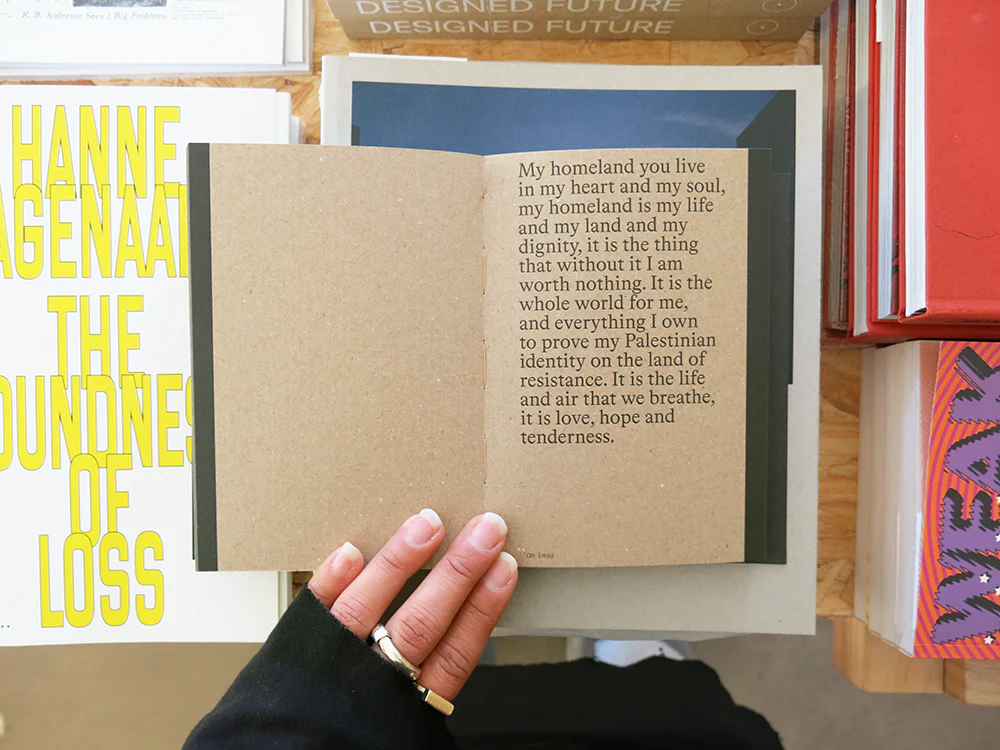 R. B. Anderson Sees 2 Big Problems
DESIGNED FUTURE
DESIGNED FUTURE
HANNE
AGENAA
THE
OUNDNES
OF
LOSS
My homeland you live
in my heart and my soul,
my homeland is my life
and my land and my
dignity, it is the thing
that without it I am
worth nothing. It is the
whole world for me,
and everything I own
to prove my Palestinian
identity on the land of
resistance. It is the life
and air that we breathe,
it is love, hope and
tenderness.
Om Emad
WEAK